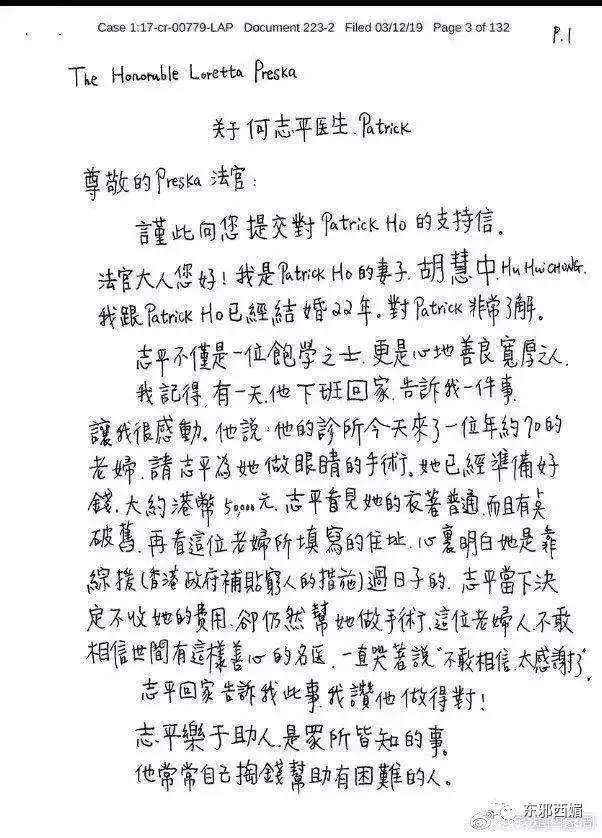 Case 1:17-cr-00779-LAP Document 223-2 Filed 03/12/19 Page 3 of 132
P.1
The Honorable Loretta Preska
关于何志平医生.Patrick
尊敬的Preska 法官:
謹此向您提交對Patrick Ho 的支持信。
法官大人您好!我是Patrick Ho 的妻子.胡慧中.Hu HuiCHONG.
我跟Patrick Ho已經結婚22年。對Patrick 非常了解。
志平不僅是一位飽學之士.更是心地善良寬厚之人.
我記得.有一天.他下班回家.告訴我一件事.
讓我很感動。他說:他的診所今天來了一位年約70的
老婦.請志平為她做眼睛的手術。她已經準備好
錢.大約港幣50,000元.志平看見她的衣著普通.而且有点
破舊.再看這位老婦所填寫的住址.心裏明白她是靠
綜援(香港政府補貼窮人的措施)過日子的.志平當下決
定不收她的費用.卻仍然幫她做手術.這位老婦人.不敢
相信世間有這樣善心的名医.一直哭著說"不敢相信.太感謝了"
志平回家告訴我此事.我讚他做得對!
志平樂于助人.是眾所皆知的事。
他常常自己掏錢幫助有困難的人。
东邪西媚